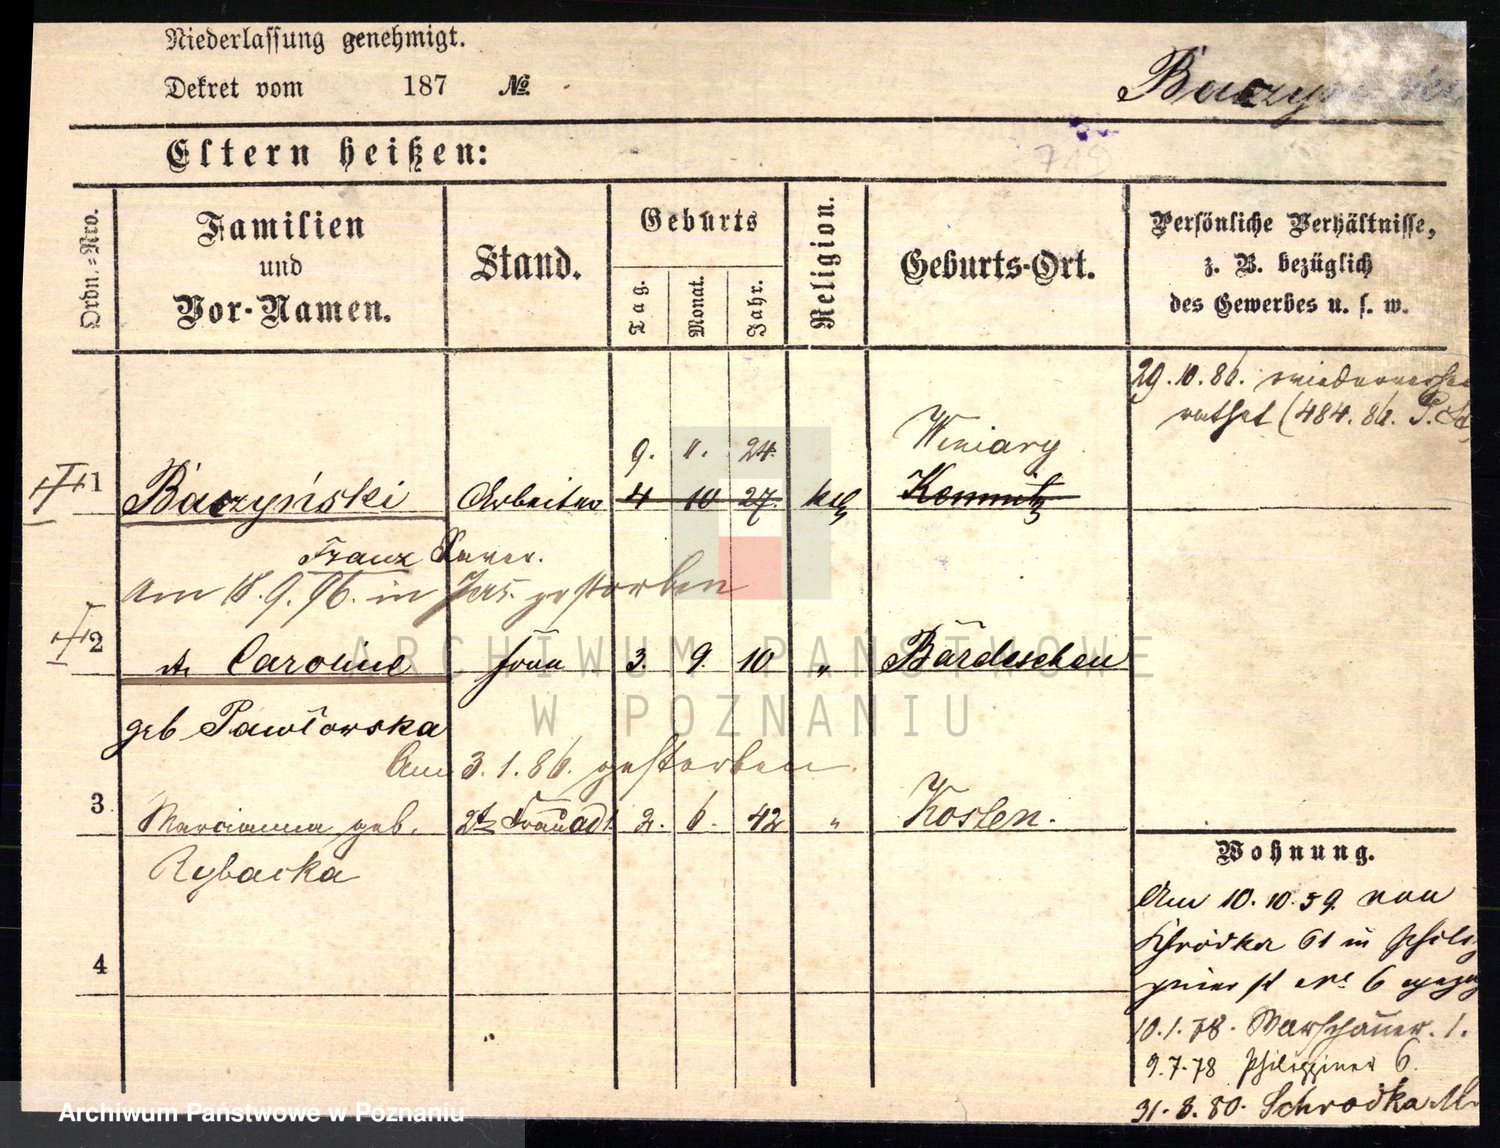 Niederlassung genehmigt.
Dekret vom 187 №
Eltern heißen:
719
Ordn.-Nro.
Familien
und
Vor-Namen.
Stand.
Geburts
Tag.
Monat.
Jahr.
Religion.
Geburts-Ort.
Persönliche Verhältnisse,
z. B. bezüglich
des Gewerbes u. s. w.
29.10.86. wiederverhei
rathet (484.86. P. St
9. 11. 24. Winiary
1 Baczyński Arbeiter 4 10 27. kth
Franz Xaver.
Am 18.9.96. in gestorben
2 Caroline Frau 3. 9. 10 " Bärdeschen
geb Pawłowska
Am 3.1.86. gestorben.
3 Marianna geb. 2te Frau ad 1. 2. 6. 42 " Kosten.
Rybacka
4
Wohnung.
Am 10.10.59. von
Schrodka 61 in Philip
piner st № 6
10.1.78. Warschauer. 1.
9.7.78 Philippiner 6.
31.3.80. Schrodka
ARCHIWUM PAŃSTWOWE
W POZNANIU
Archiwum Państwowe w Poznaniu